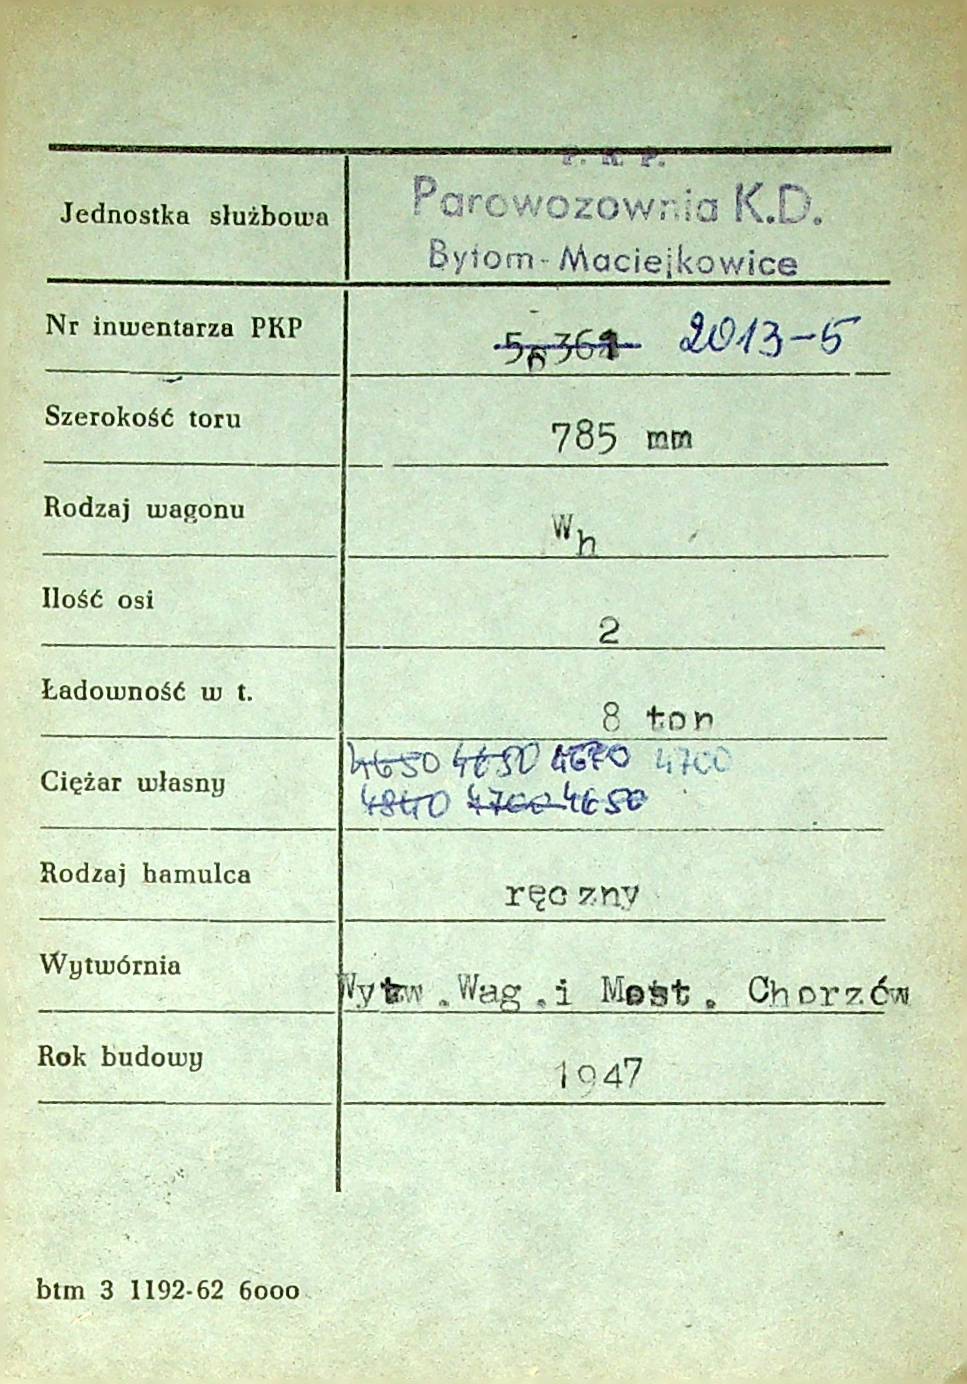 P. K. P.
Jednostka służbowa Parowozownia K.D.
Bytom-Maciejkowice
Nr inwentarza PKP 2013-5
Szerokość toru 785 mm
Rodzaj wagonu Wh
Ilość osi 2
Ładowność w t. 8 ton
4650 4650 4670 4700
Ciężar własny 4840 4700 4650
Rodzaj hamulca ręczny
Wytwórnia Wytw.Wag.i Most. Chorzów
Rok budowy 1947
btm 3 1192-62 6000